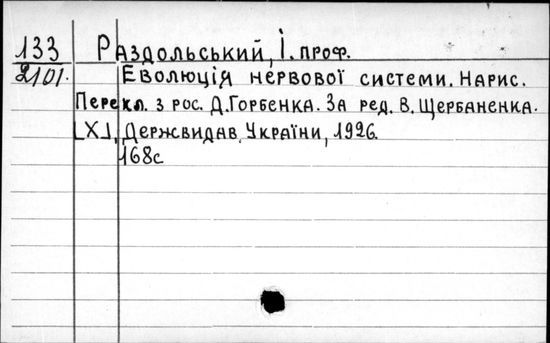 133 Раздольський, І. проф.
2101. Еволюція нервової системи. Нарис.
Перекл. з рос. Д. Горбенка. За ред. В. Щербаненка.
[Х], Держвидав України, 1926.
168с